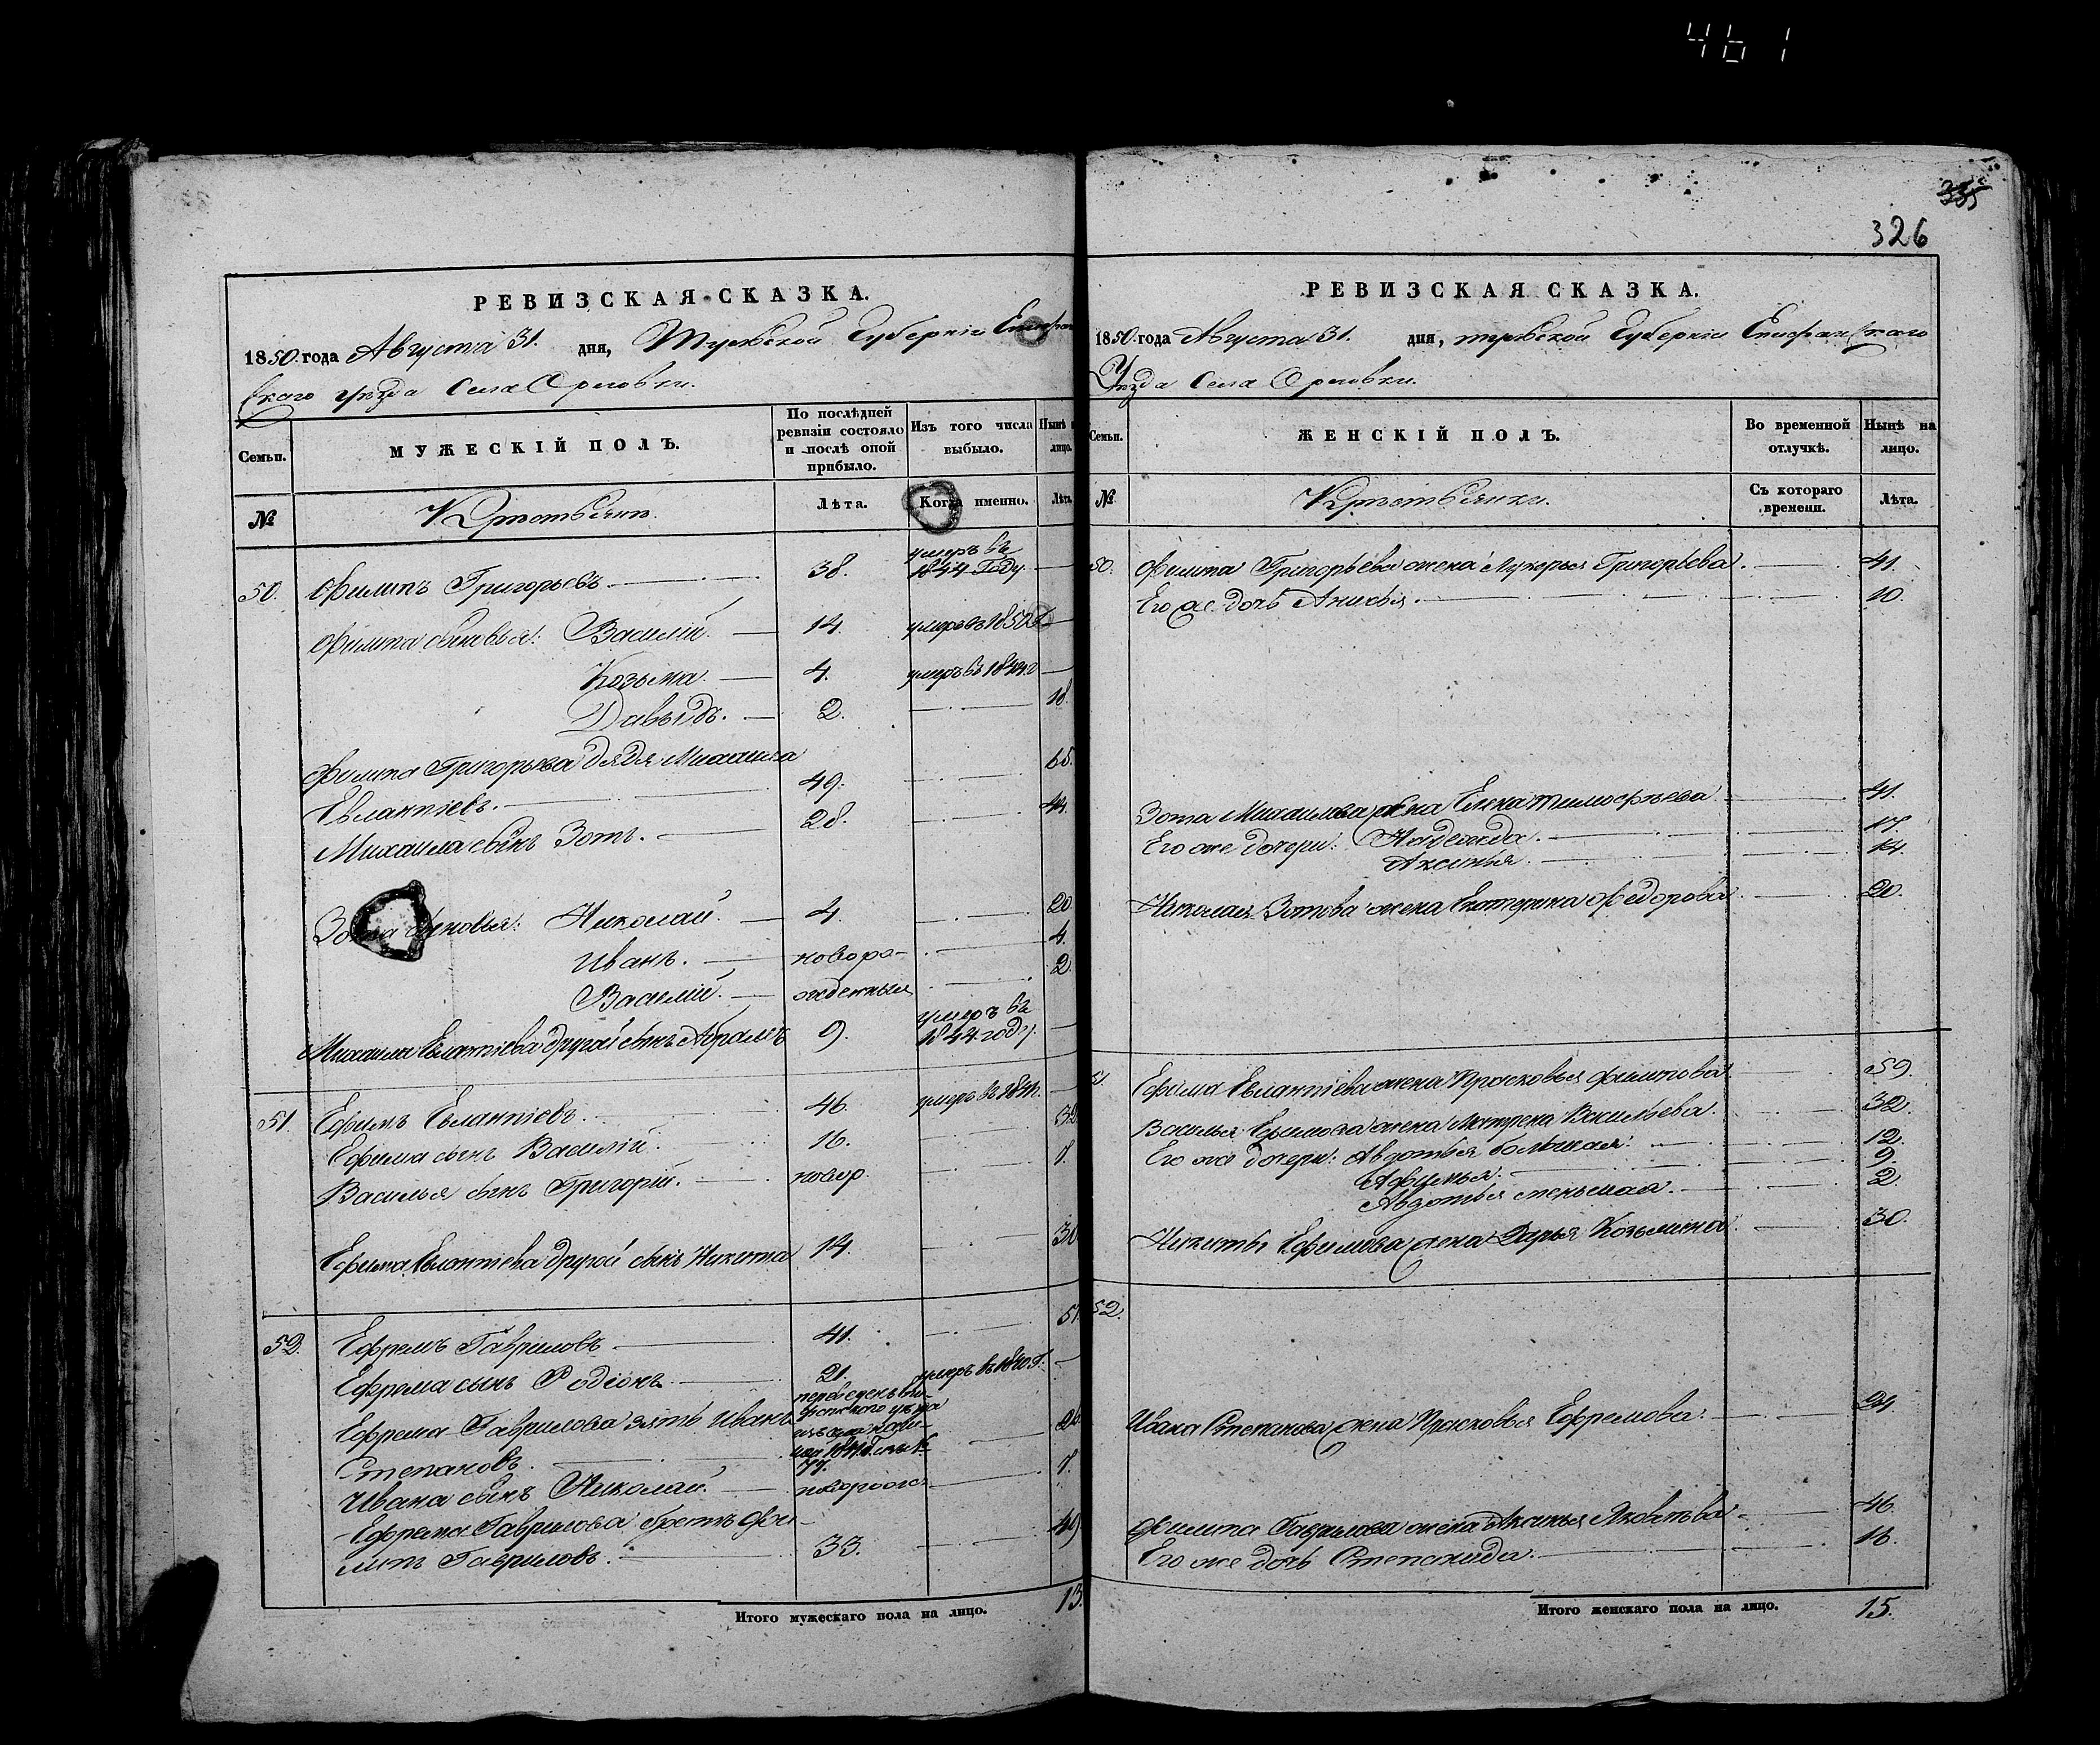 461
335
326
РЕВИЗСКАЯ СКАЗКА.
1850. года Августа 31. дня, Тульской Губернiи Епифан
скаго уѣзда Села Орловки.
Семьи.
МУЖЕСКIЙ ПОЛЪ.
По послѣдней ревизiи состояло и послѣ оной прибыло.
Изъ того числа выбыло.
Нынѣ н лицо.
№
Крестьянъ.
Лѣта.
Когда именно.
Лѣта.
50. Филипъ Григорьевъ 38. умеръ въ 1844 Году
Филипа сыновья: Василiй. 14. умеръ въ 1850 Г
Козьма. 4. умеръ въ 1844 г
Давыдъ. 2. 18.
Филипа Григорьева дядя Михаила
Евлантiевъ. 49. 65.
Михаила сынъ Зотъ. 28. 44.
Зота сыновья: Николай. 4. 20
Иванъ. новоро- 4.
Василiй. жденныя 2.
Михаила Евлантiева другой сынъ Абрамъ 9. умеръ въ 1844 году.
51. Ефимъ Евлантiевъ. 46. умеръ въ
Ефима сынъ Василiй. 16. 32
Василья сынъ Григорiй. новор.
Ефима Евлантiева другой сынъ Никита 14. 30
52. Ефремъ Гавриловъ 41. 57.
Ефрема сынъ Родiонъ. 21. умеръ въ 1840 Г.
Ефрема Гаврилова зять Иванъ переведенъ
Степановъ. 26
Ивана сынъ Николай новорож.
Ефрема Гаврилова братъ Фи-
липъ Гавриловъ. 33. 49.
Итого мужескаго пола на лицо. 13.
РЕВИЗСКАЯ СКАЗКА.
1850. года Августа 31. дня, тульской Губернiи Епифанскаго
Уѣзда Села Орловки.
Семьи.
ЖЕНСКIЙ ПОЛЪ.
Во временной отлучкѣ.
Нынѣ на лицо.
№
Крестьянки.
Съ котораго времени.
Лѣта.
50. Филипа Григорьева жена Лукерья Григорьева. 41.
Его же дочь Анисья. 10.
Зота Михаилова жена Елена Тимофѣева 41.
Его же дочери: Надежда. 17.
Аксинья. 14.
Николая Зотова жена Екатерина Федорова 20.
51. Ефима Евлантiева жена Прасковья Филипова 59.
Василья Ефимова жена Матрена Васильева. 32.
Его же дочери: Авдотья большая. 12.
Афимья. 9.
Авдотья меньшая. 2.
Никиты Ефимова жена Дарья Козьмина 30.
52.
Ивана Степанова жена Прасковья Ефремова. 24.
Филипа Гаврилова жена Аксинья Яковлѣва 46.
Его же дочь Степанида. 16.
Итого женскаго пола на лицо. 15.